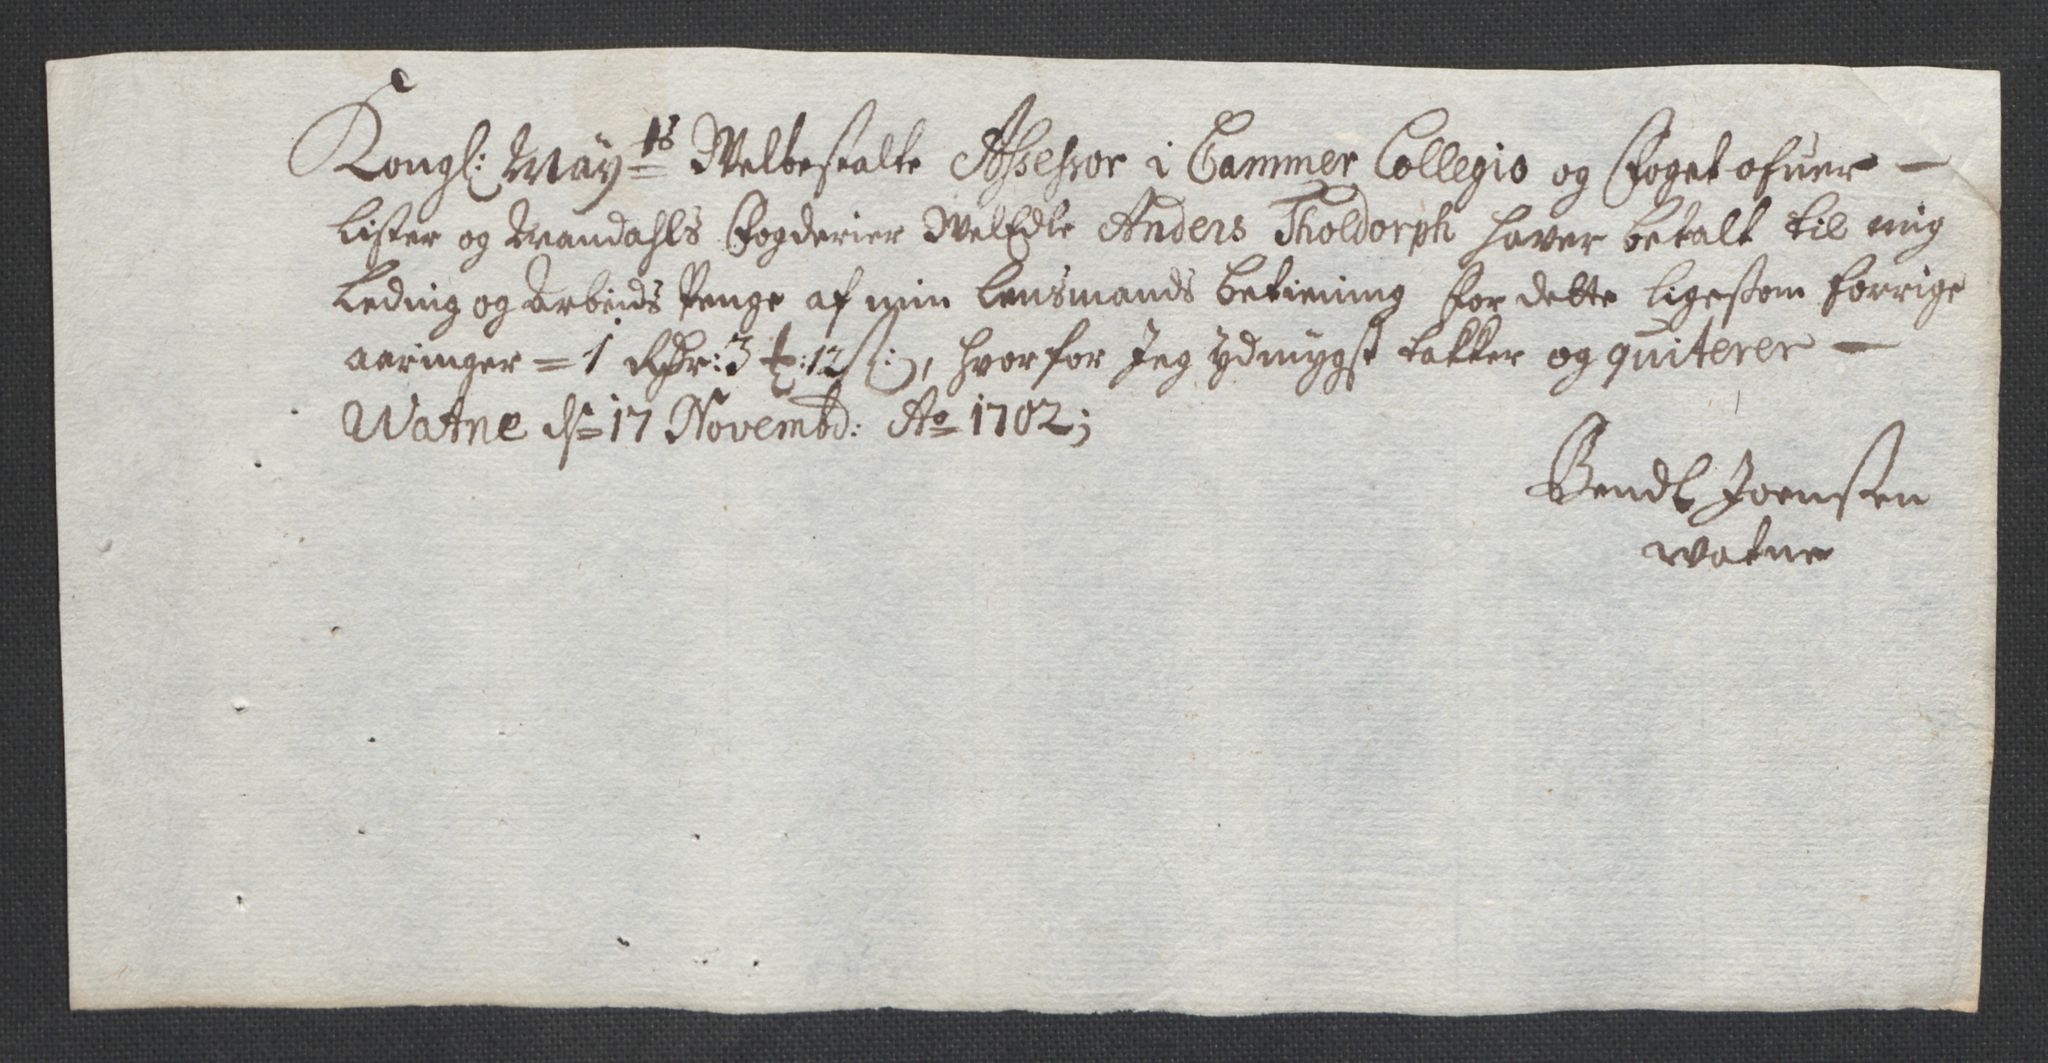 Kongl: May:ts Welbestalte Assessor i Cammer Collegio og Foget ofuer —
Lister og Mandahls Fogderier WelEdle Anders Tholdorph hafver betalt til mig
Leding og Arbeids Penge af min Lensmands bestening for dette ligesom forrige
aaringer = 1 Rdr: 3 ꝑ: 12 s:, hvorfor Jeg ydmygst takker og quiterer —
Watne ds 17 Novembd: Ao 1702;
Bendt Joensen
Watne